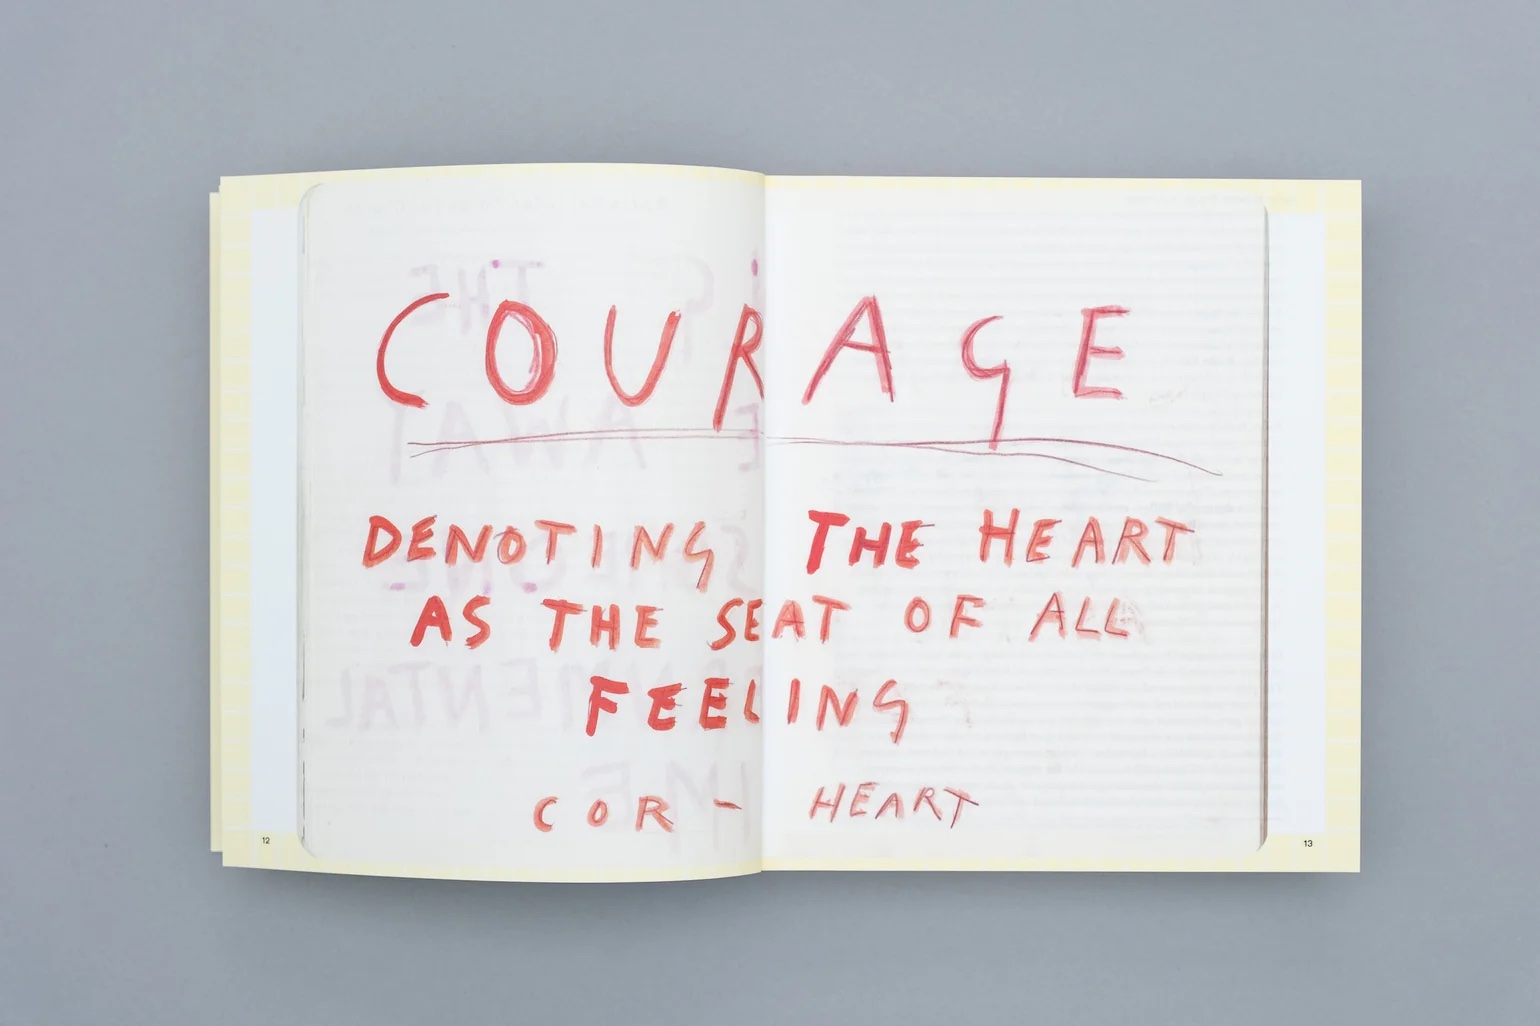 COURAGE
DENOTING THE HEART
AS THE SEAT OF ALL
FEELING
COR - HEART
12
13